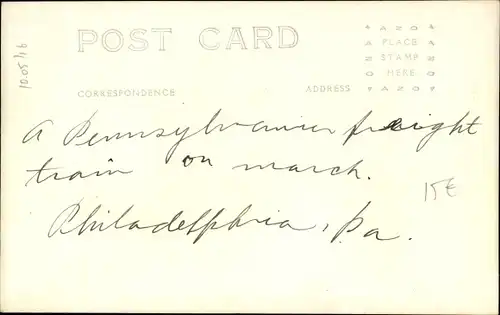 10.05/16
POST CARD
AZO
PLACE
STAMP
HERE
AZO
CORRESPONDENCE
ADDRESS
A Pennsylvania freight
train on march.
Philadelphia, Pa.
15€